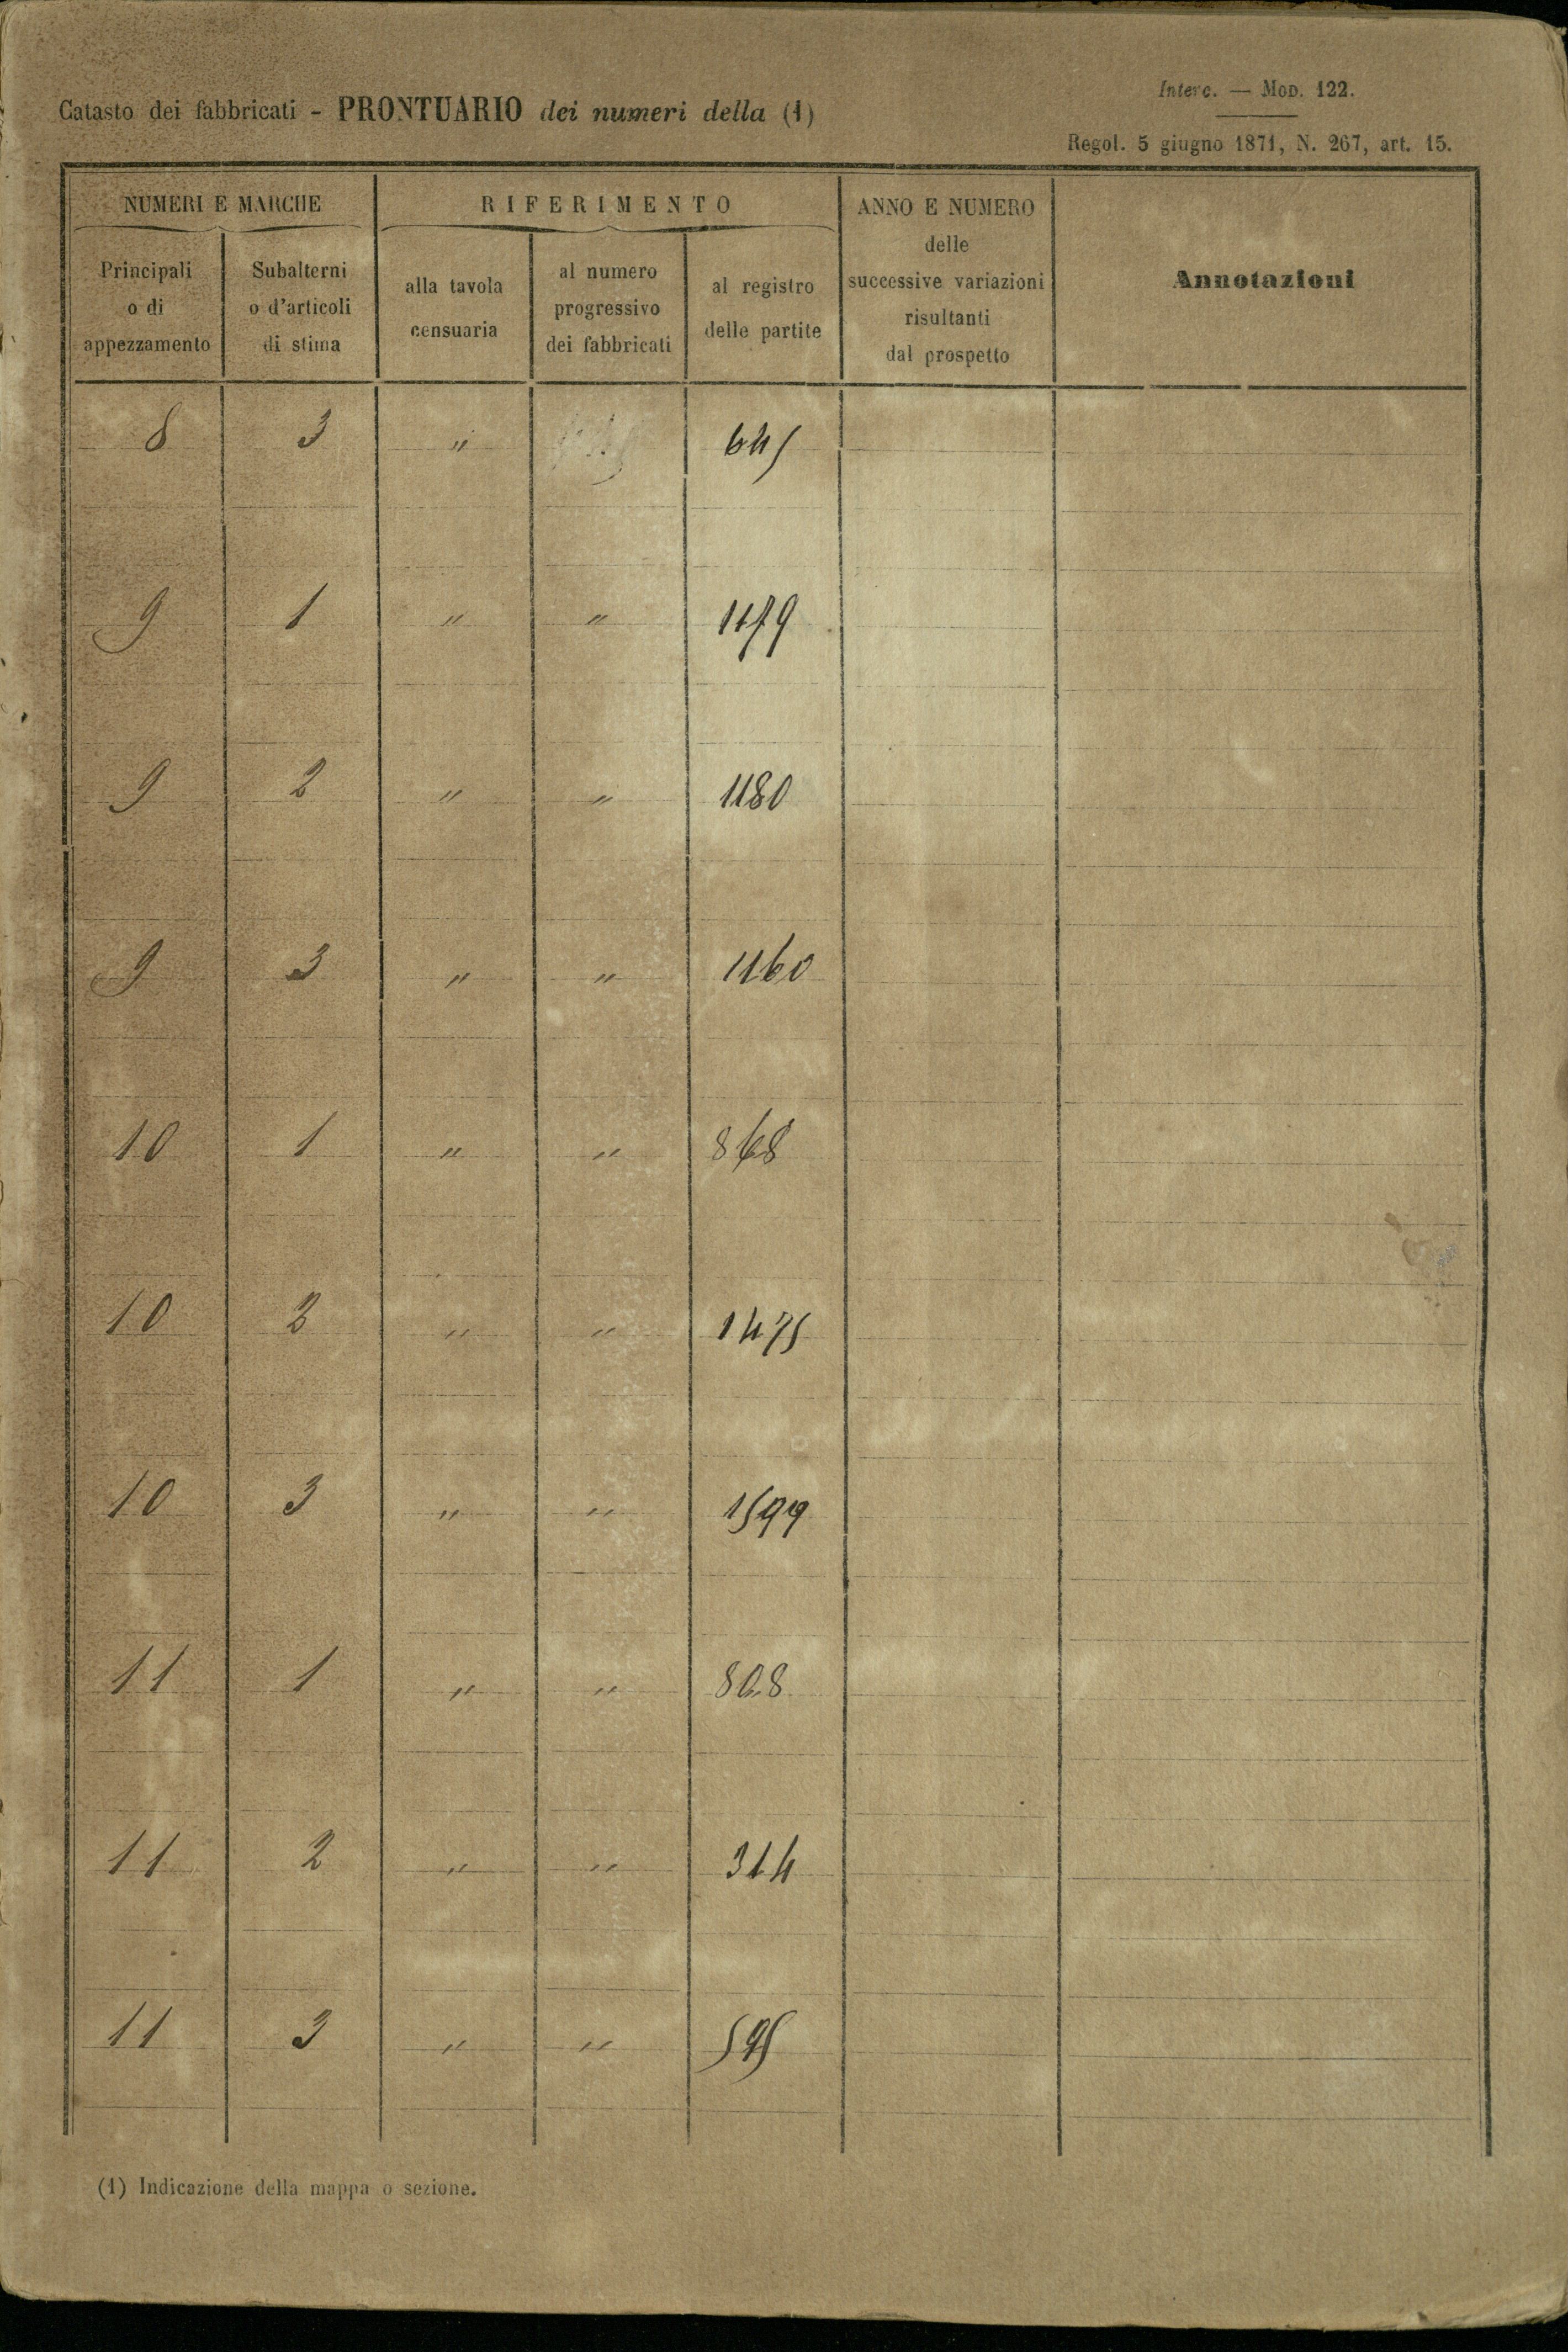 Interc. — Mod. 122.
Catasto dei fabbricati - PRONTUARIO dei numeri della (1)
Regol. 5 giugno 1871, N. 267, art. 15.
NUMERI E MARCHE RIFERIMENTO ANNO E NUMERO delle successive variazioni risultanti dal prospetto Annotazioni
Principali o di appezzamento Subalterni o d'articoli di stima alla tavola censuaria al numero progressivo dei fabbricati al registro delle partite
8 3 " 645
9 1 " " 1179
9 2 " " 1180
9 3 " " 1160
10 1 " " 868
10 2 " " 1475
10 3 " " 1599
11 1 " " 808
11 2 " " 314
11 3 " " 595
(1) Indicazione della mappa o sezione.